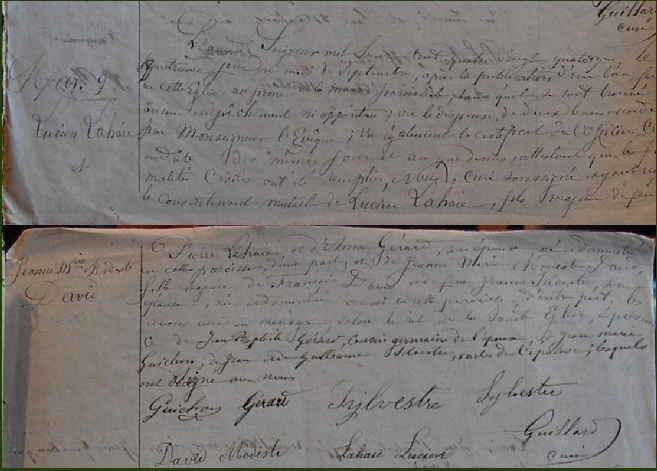 Guillard
curé
L'an du Seigneur mil huit cent quatre vingt quatorze, le
Mar. 9
quatrième jour du mois de Septembre, après la publication d'un ban, faite
en cette église au prône de la messe paroissiale, sans qu'il se soit trouvé
aucun empêchement ni opposition; vu la dispense de deux bans accordée
Lucien Lahaie
par Monseigneur l'Evêque; Vu également le certificat de l'Officier Civil
et
en date des mêmes jour et an que dessus, attestant que les for
malités Civiles ont été remplies, Nous, curé soussigné ayant reçu
le consentement mutuel de Lucien Lahaie, fils majeur de feu
Pierre Lahaie et d'Anne Gérard, son épouse né et domicilié
Jeanne Mie Modeste
en cette paroisse, d'une part, et de Jeanne Marie Modeste David,
David
fille majeure de François David et de feu Jeanne Sylvestre, son
épouse, née et domiciliée aussi en cette paroisse d'autre part, les
avons unis en mariage selon le rit de la Sainte Eglise, en présence
de Jean Baptiste Gérard, cousin germain de l'époux, de Jean Marie
Guichon, de Jean et de Guillaume Sylvestre, oncles de l'épouse; lesquels
ont signé avec nous
Guichon Gérard Sylvestre Sylvestre
Guillard
David Modeste Lahaie Lucien curé